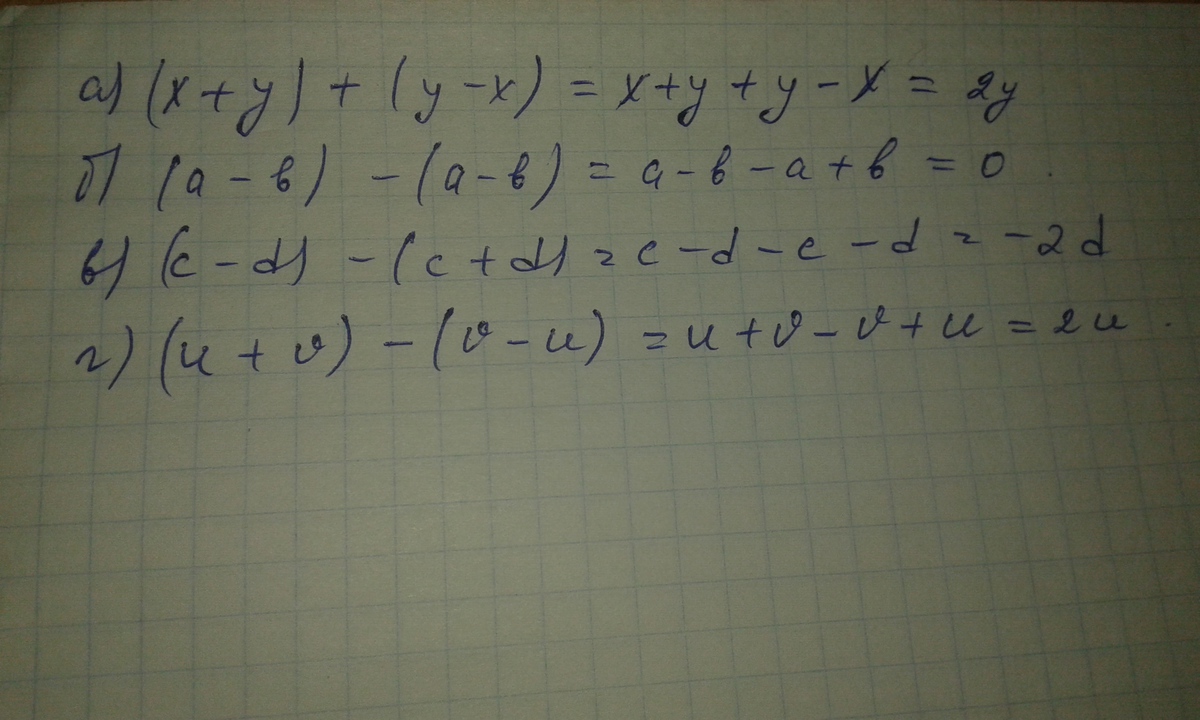 а) (x + y) + (y - x) = x + y + y - x = 2y
б) (a - в) - (a - в) = a - в - a + в = 0.
в) (c - d) - (c + d) = c - d - c - d = -2d
г) (u + v) - (v - u) = u + v - v + u = 2u.